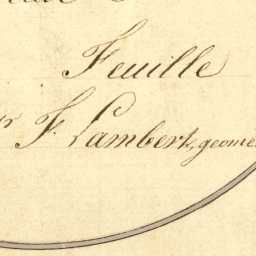 Feuille
F. Lambert, geome